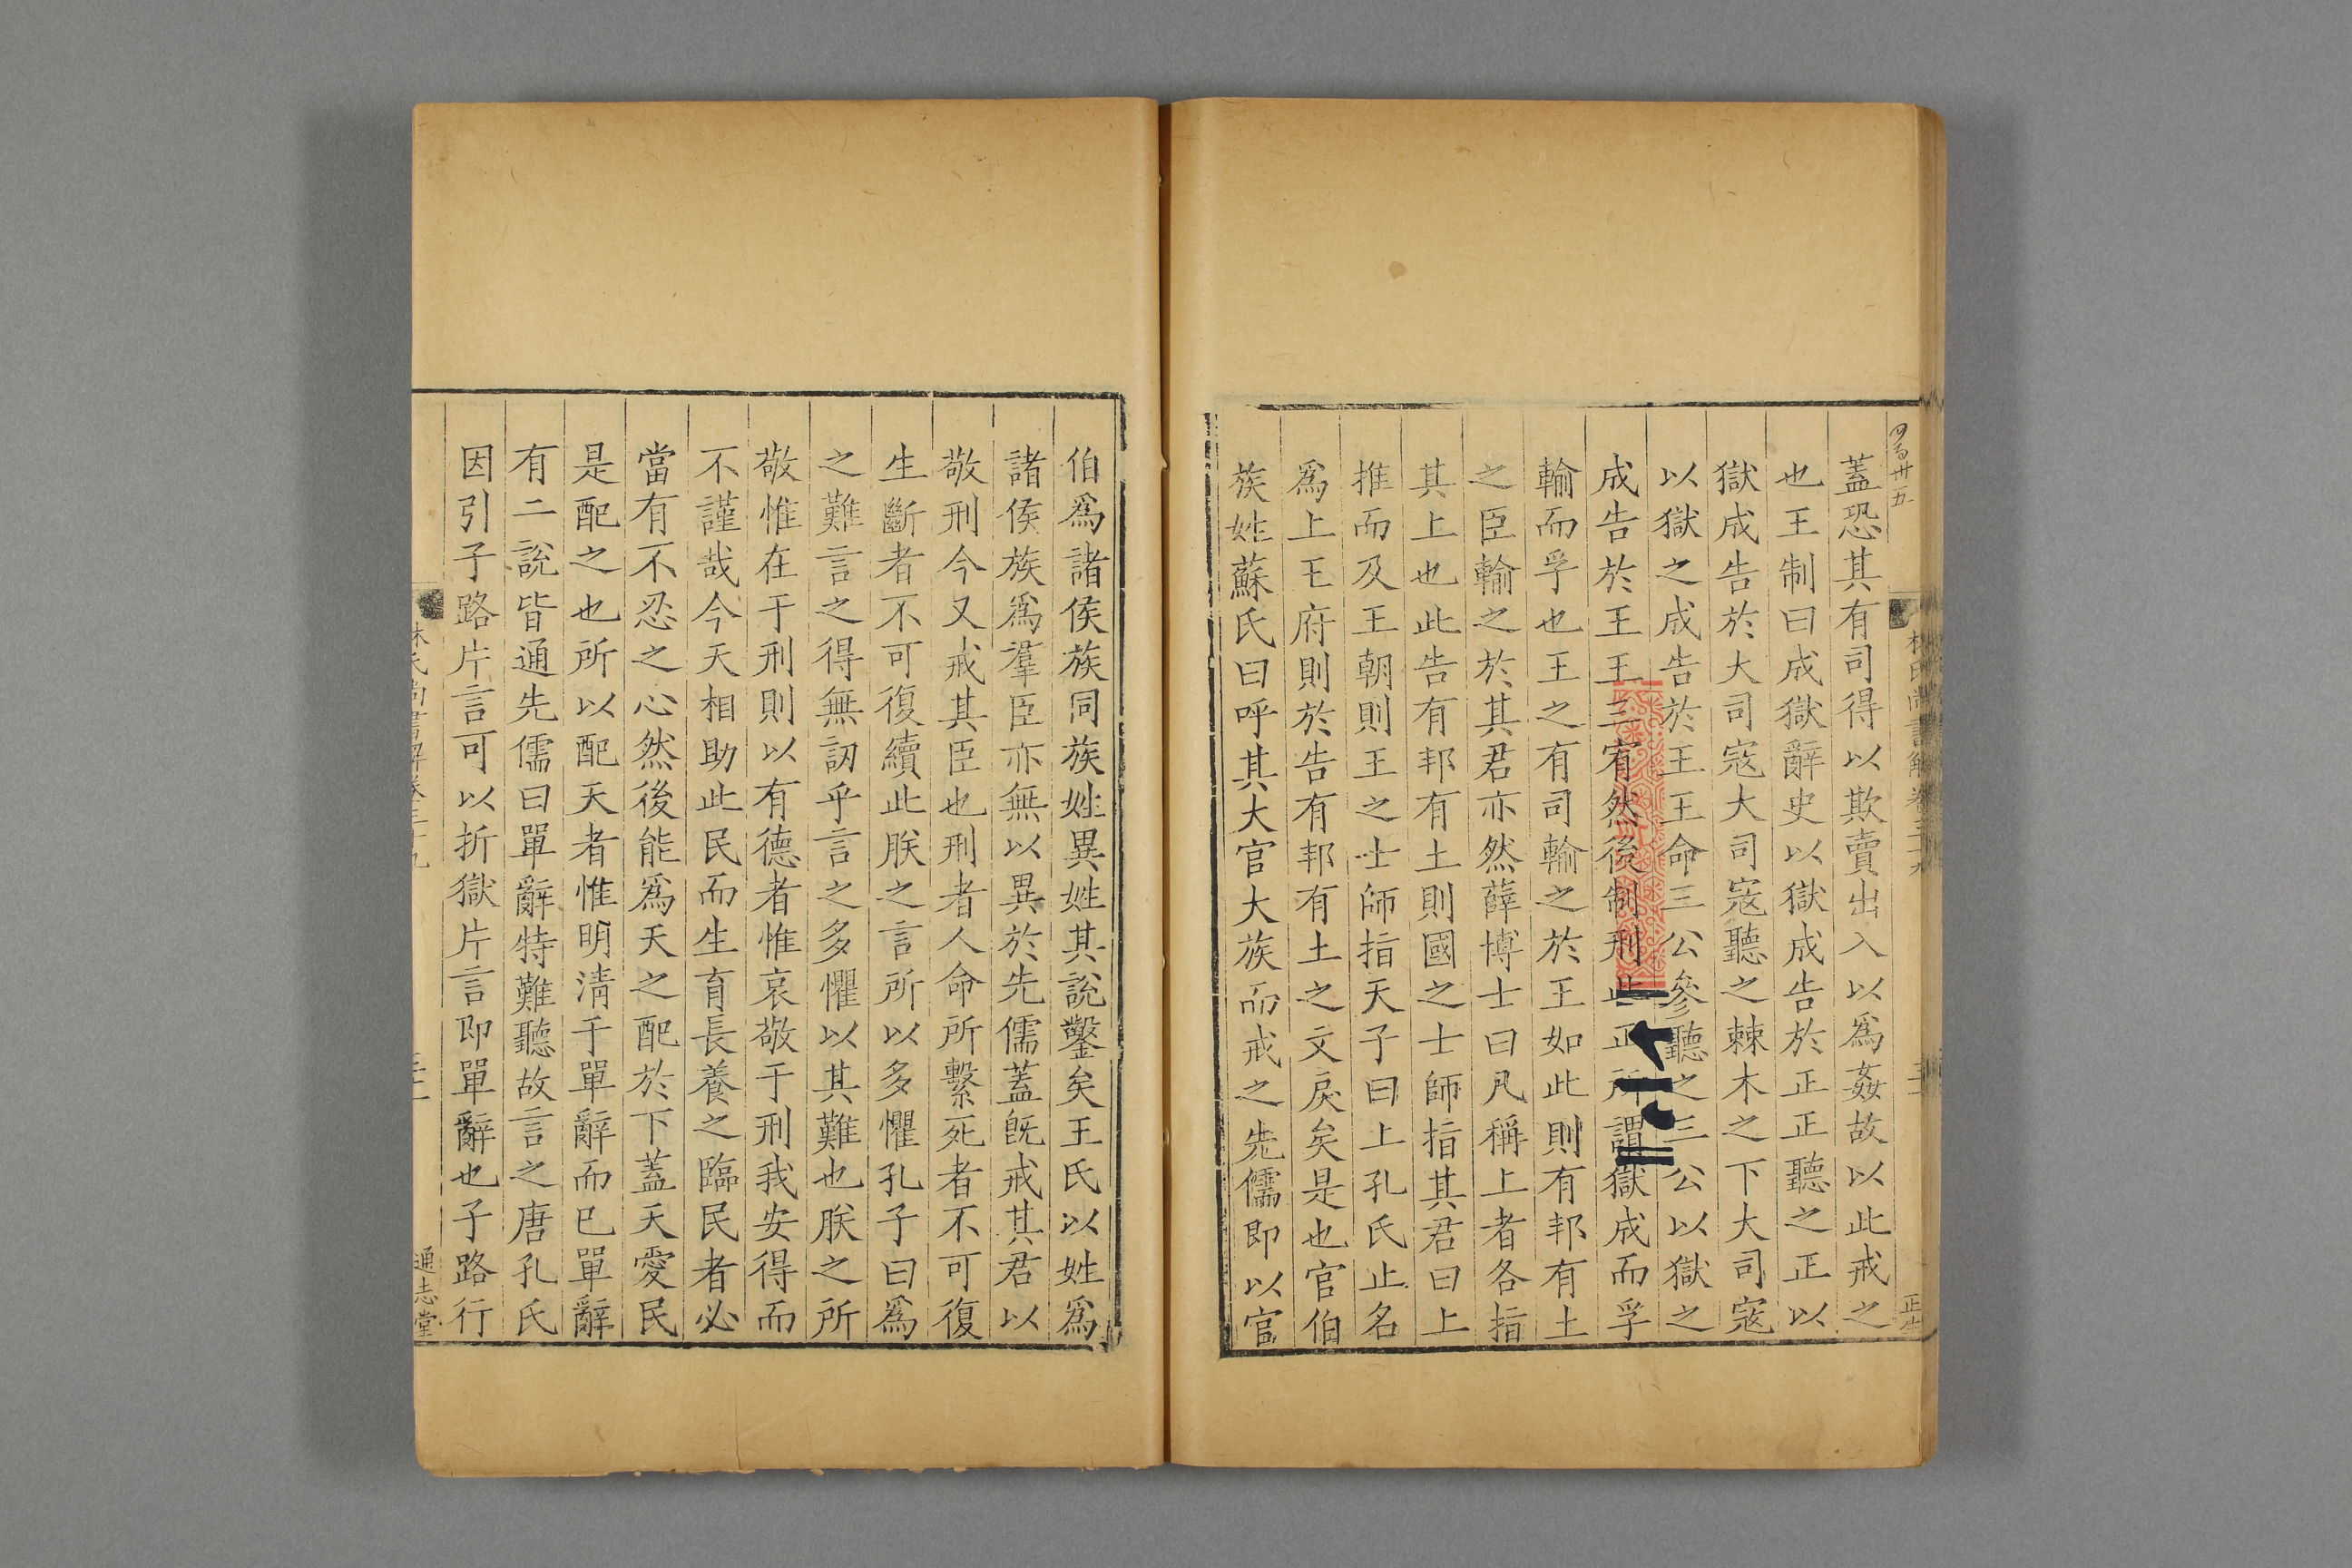 蓋恐其有司得以欺賣出入以爲姦故以此戒之
也王制曰成獄辭史以獄成告於正正聽之正以
獄成告於大司寇大司寇聽之棘木之下大司寇
以獄之成告於王王命三公參聽之三公以獄之
成告於王王三宥然後制刑此正所謂獄成而孚
輸而孚也王之有司輸之於王如此則有邦有土
之臣輸之於其君亦然薛博士曰凡稱上者各指
其上也此告有邦有土則國之士師指其君曰上
推而及王朝則王之士師指天子曰上孔氏止名
爲上王府則於告有邦有土之文戾矣是也官伯
族姓蘇氏曰呼其大官大族而戒之先儒即以官
伯爲諸侯族同族姓異姓其說鑿矣王氏以姓爲
諸侯族爲羣臣亦無以異於先儒蓋旣戒其君以
敬刑今又戒其臣也刑者人命所繫死者不可復
生斷者不可復續此朕之言所以多懼孔子曰爲
之難言之得無訒乎言之多懼以其難也朕之所
敬惟在于刑則以有德者惟哀敬于刑我安得而
不謹哉今天相助此民而生育長養之臨民者必
當有不忍之心然後能爲天之配於下蓋天愛民
是配之也所以配天者惟明淸于單辭而已單辭
有二說皆通先儒曰單辭特難聽故言之唐孔氏
因引子路片言可以折獄片言即單辭也子路行
通志堂